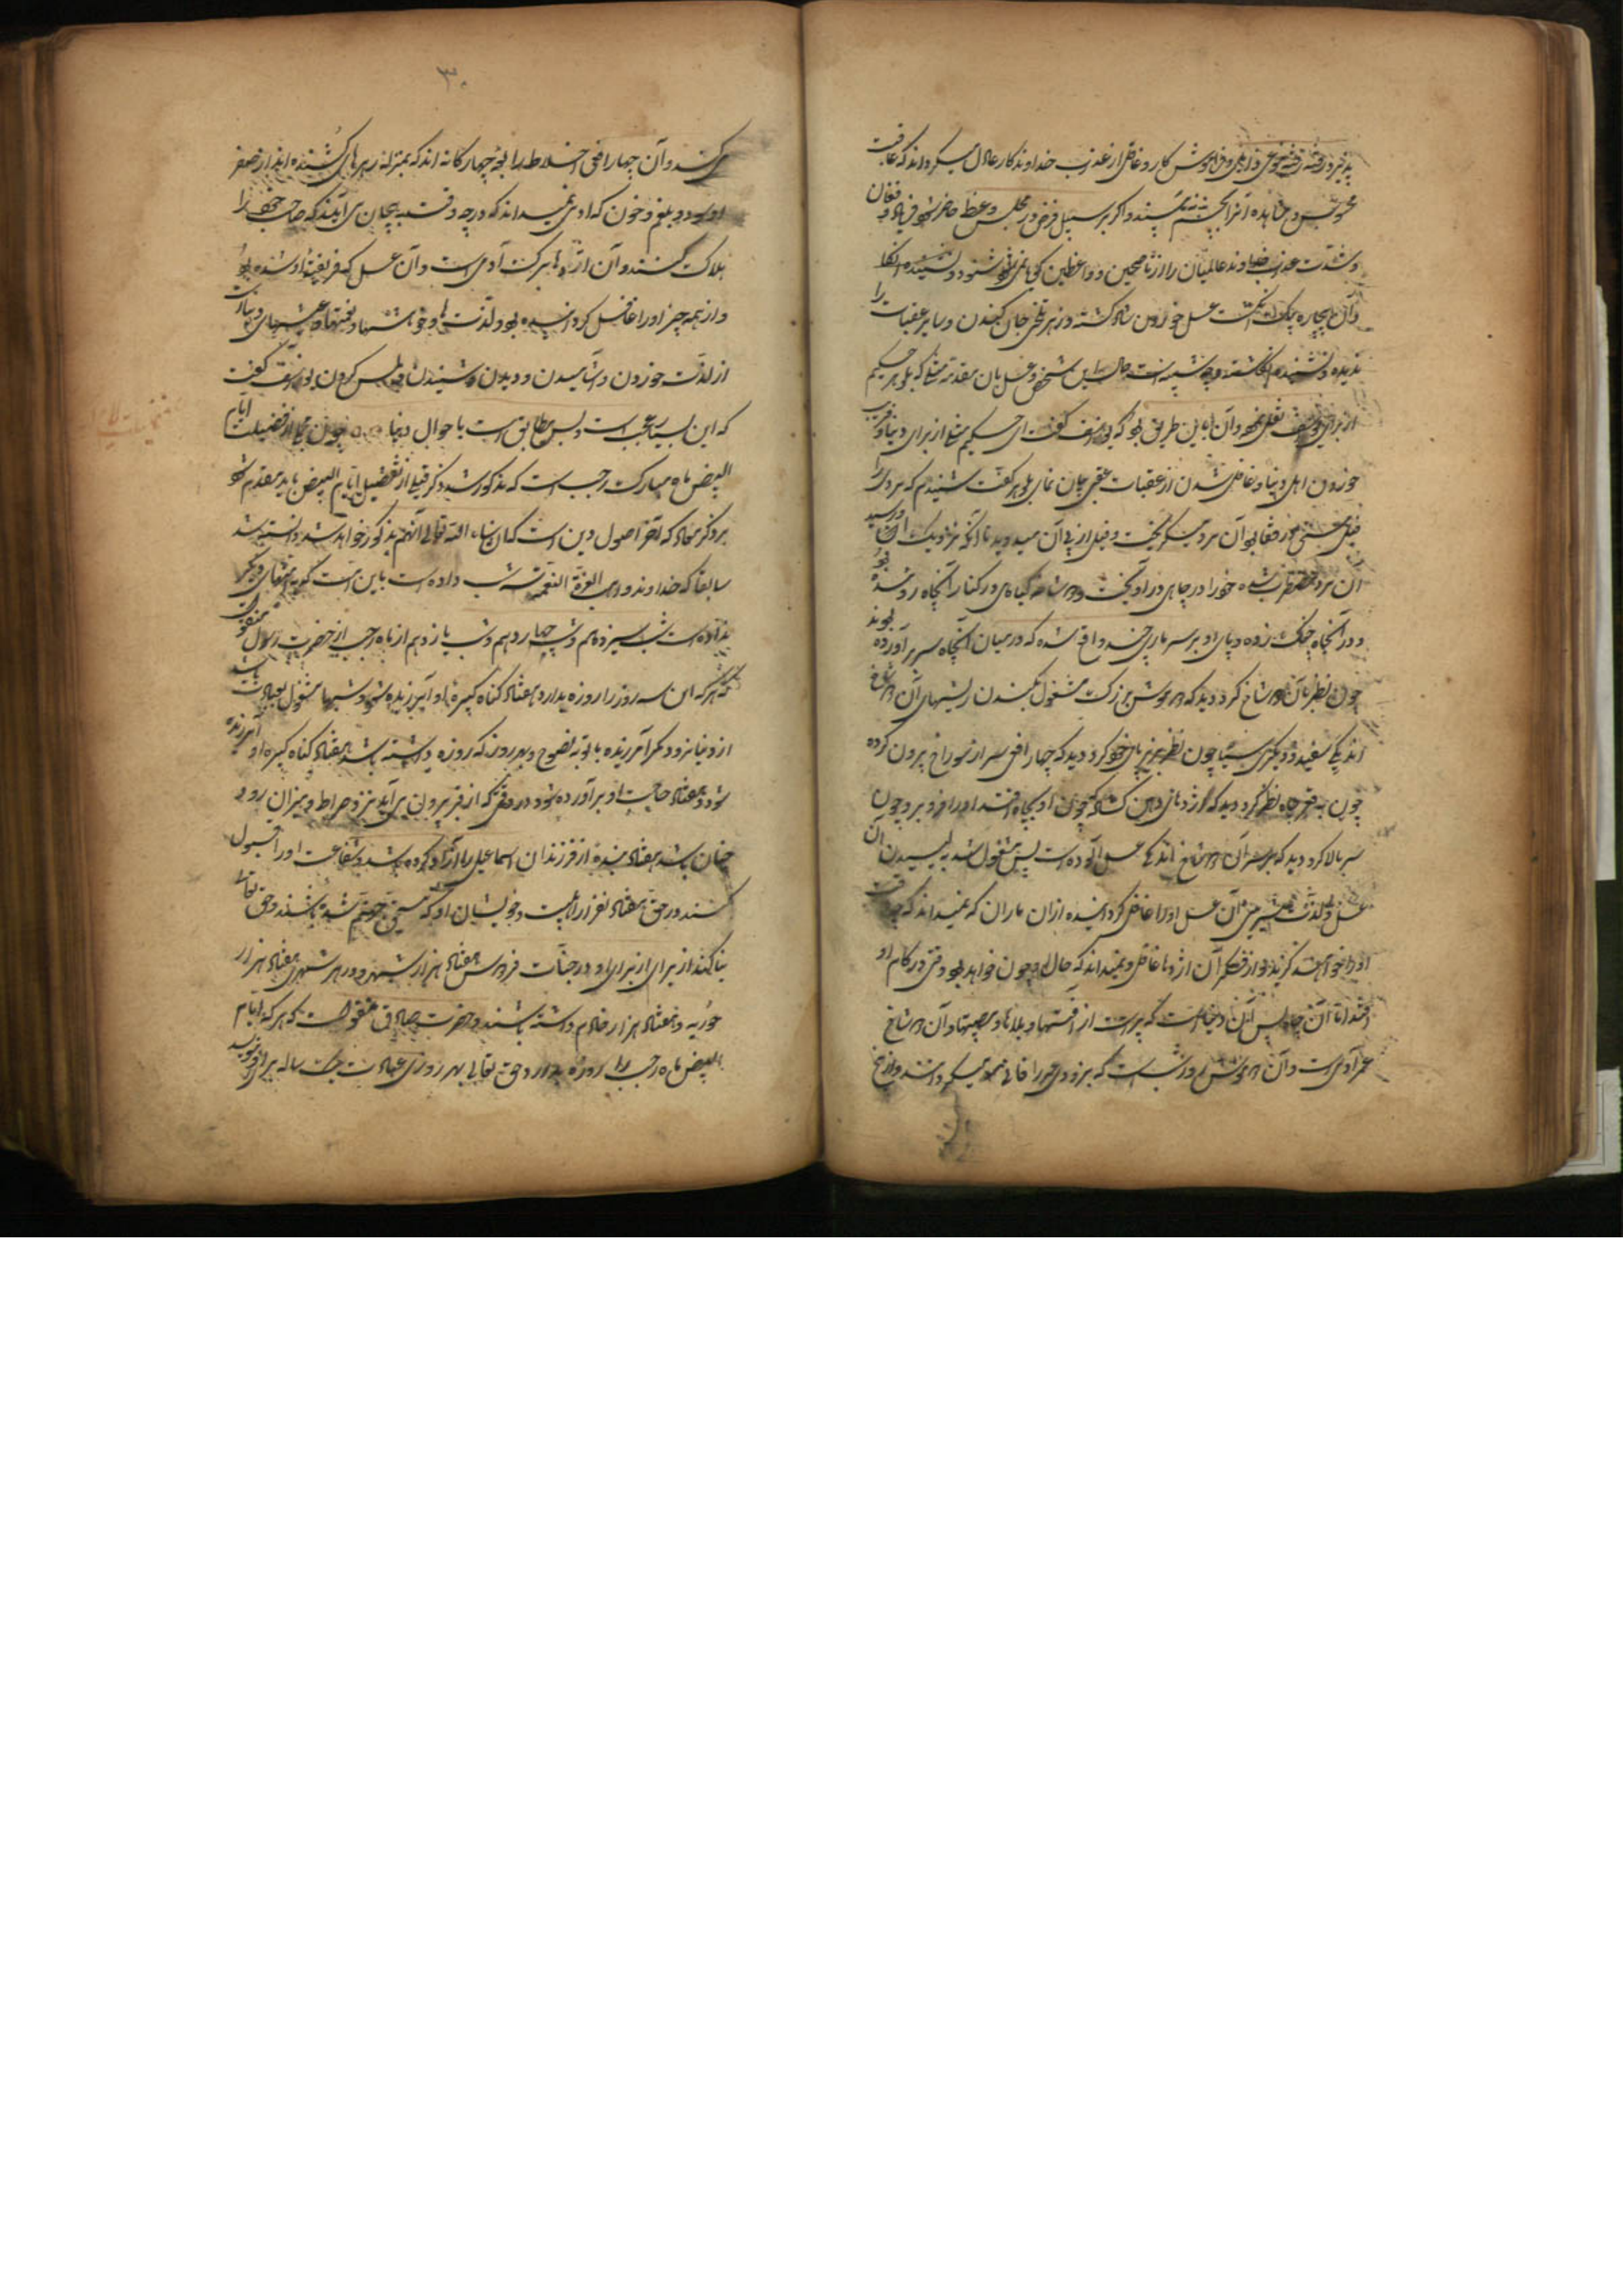 پذیرد رفته رفته نوعی ذاهل و فراموش کار و غافل از عذاب خداوندکار عادل میگرداند که عاقبت
محسوس و مشاهده آنرا بچشم نه بینند و اگر بر سبیل فرض در مجلس وعظ حاضر شود فریاد و فغان
و شدت عذاب خداوند عالمیان را از ناصحین و واعظین گویا نمی شنود و نشنیده انکا
و آن بیچاره بیک انگشت عسل خوردن شاد گشته و زهر تلخی جان کندن و سایر عقبات را
ندیده و نشنیده انگاشته و حال این شخص و عسل بآن مقدمه میماند که بلوهر حکیم
از برای یوسف نقل نمود و آن باین طریق بود که یوسف گفت ای حکیم مثلی از برای دنیا و فریب
خوردن اهل دنیا و غافل شدن از عقبات عقبی بیان نمای بلوهر گفت شنیدم که مردی را
فیل مستی در قفا بود آن مرد میگریخت و فیل از پی آن میدوید تا آنکه نزدیک او رسید
آن مرد مضطرب شده خود را در چاهی در آویخت و دو شاخه گیاهی در کنار آنچاه روئیده بود
و در آنجا چنگ زده و پای او بر سر ماری چند واقع شده که در میان آنچاه سر برآورده بودند
چون نظر بآن دو شاخ کرد دید که دو موش بزرگ مشغول بکندن ریشهای آن دو شاخ
اند یکی سفید و دیگری سیاه چون نظر بزیر پای خود کرد دید که چهار افعی سر از سوراخ بیرون کرده
چون به قعر چاه نظر کرد دید که اژدهائی دهن گشاده که چون او بچاه افتد او را فرو برد چون
سر بالا کرد دید که بر سر آن دو شاخ اندکی عسل آلوده است پس مشغول شد به لیسیدن آن
عسل و لذت شیرینی آن عسل او را غافل گردانیده از آن ماران که نمیداند که چه وقت
او را خواهند گزید و از فکر آن اژدها غافل و نمیداند که حال او چون خواهد بود وقتی در کام او
افتد اما آن چاه پس آن دنیا است که پر است از آفتها و بلاها و مصیبتها و آن دو شاخ
عمر آدمی است و آن دو موش روز و شب است که بزودی عمر را فانی میگردانند و آن
میکنند و آن چهار افعی اخلاط رابعه چهارگانه اند که بمنزله زهرهای کشنده اند از صفر
او سودا و بلغم و خون که آدمی نمیداند که در چه وقت به هیجان می آیند که صاحب خود را
هلاک کنند و آن اژدها مرگ آدمی است و آن عسل که فریفته او شده بود
و از همه چیز او را غافل گردانیده بود لذتها و خواهشها و نعمتها و عیشهای دنیا است
از لذت خوردن و آشامیدن و دیدن و شنیدن و لمس کردن یوسف گفت
که این بسیار عجب است و پس مطابق است با احوال دنیا چون از فضیلت ایام
البیض ماه مبارک رجب است که مذکور شد ذکر قلیلی از تفضیل ایام البیض باید مقدم شود
بر ذکر معاد که آخر اصول دین است که ان شاء الله تعالی آنهم مذکور خواهد شد دانسته شد
سابقا که خداوند واهب العزة النعمه سه شب داده است باین امت که بامتهای دیگر
نداده است شب سیزدهم و شب چهاردهم و شب پانزدهم از ماه رجب از حضرت رسول منقول
که هر که این سه روز را روزه بدارد هفتاد گناه کبیره او آمرزیده شود و شبها مشغول بعبادت باشد
از دنیا نرود مگر آمرزیده با توبه نصوح و بهر روز که روزه داشته باشد هفتاد گناه کبیره او آمرزیده
شود و هفتاد حاجت او برآورده شود در وقتی که از قبر بیرون برآید نزد صراط و میزان رود
چنان باشد هفتاد بنده از فرزندان اسماعیل را آزاد کرده باشد و شفاعت او را قبول
کنند در حق هفتاد نفر از اهلبیت و خویشان او که مستحق جهنم شده باشند و حق تعالی
بنا کند از برای او در جنات فردوس هفتاد هزار شهر و در هر شهری هفتاد هزار
حوریه و هفتاد هزار خادم داشته باشند و حضرت صادق منقولست که هر که ایام
البیض ماه رجب را روزه بدارد حق تعالی بهر روزی عبادت ساله برای او نویسد